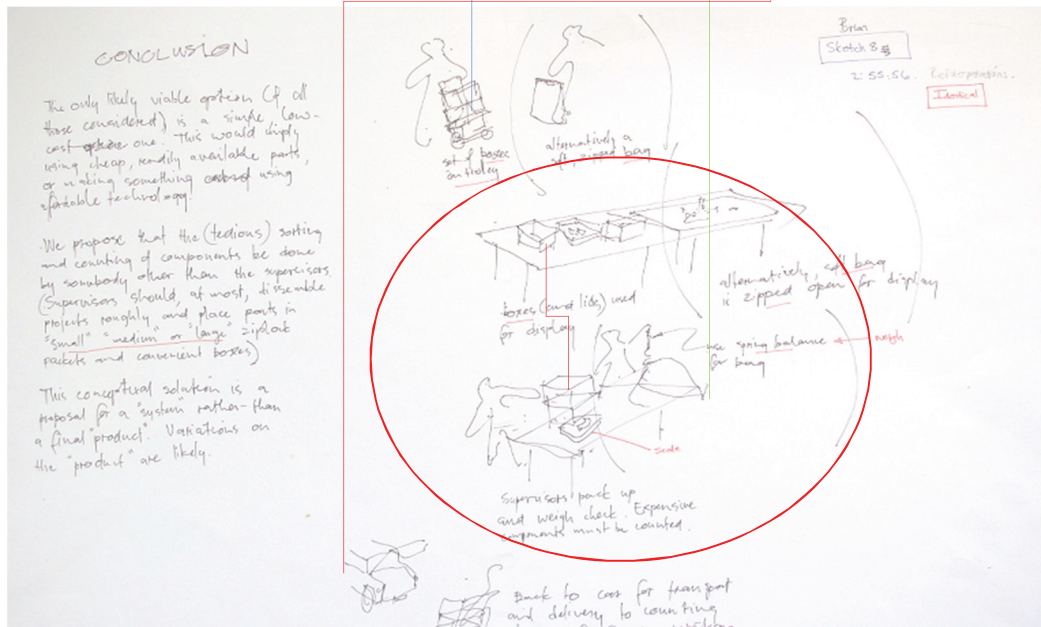 CONCLUSION
The only likely viable option (of all
those considered) is a simple low-
cost one. This would imply
using cheap, readily available parts,
or making something using
affordable technology.
We propose that the (tedious) sorting
and counting of components be done
by somebody other than the supervisors.
(Supervisors should, at most, dissemble
projects roughly and place parts in
"small" "medium" or "large" ziplock
packets and convenient boxes)
This conceptual solution is a
proposal for a "system" rather than
a final "product". Variations on
the "product" are likely.
set of boxes
on trolley
alternatively a
soft, zipped bag
Sketch 8
2:55:56.
Identical
boxes (and lids) used
for display
alternatively, soft bag
is zipped open for display
use spring balance
for bag
weigh
Scale
Supervisors pack up
and weigh check. Expensive
components must be counted.
Back to car for transport
and delivery to counting